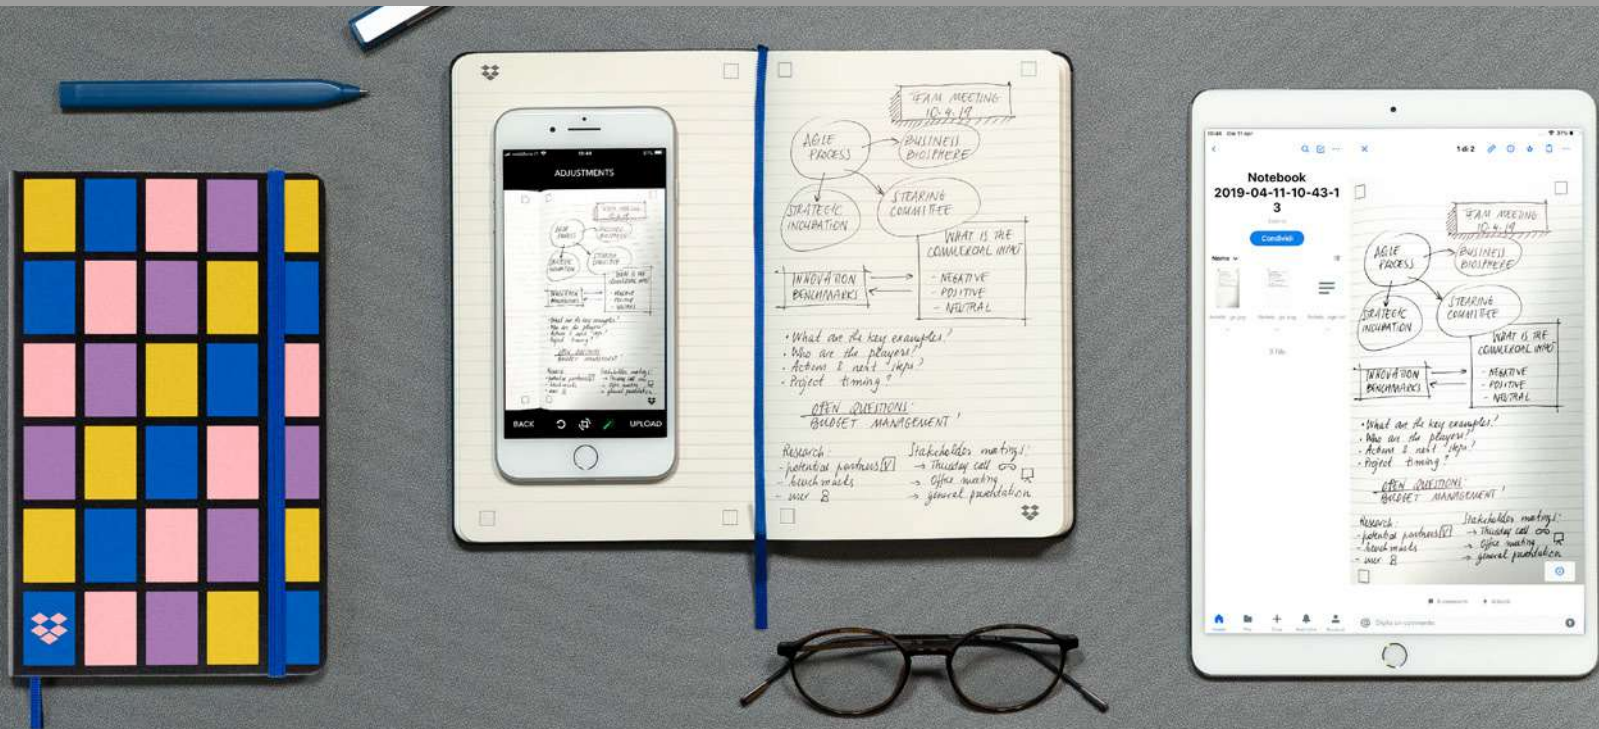 ADJUSTMENTS
BACK
UPLOAD
TEAM MEETING
10.4.19
AGILE
PROCESS
BUSINESS
BIOSPHERE
STRATEGIC
INCUBATION
STEARING
COMMITTEE
WHAT IS THE
COMMERCIAL IMPACT
- NEGATIVE
- POSITIVE
- NEUTRAL
INNOVATION
BENCHMARKS
• What are the key examples?
• Who are the players?
• Action & next steps!
• Project timing?
OPEN QUESTIONS:
BUDGET MANAGEMENT!
Research:
- potential partners
- benchmarks
- user
Stakeholder meetings:
→ Thursday call
→ Office meeting
→ general presentation
Notebook
2019-04-11-10-43-1
3
Condividi
Nome
1 di 2
TEAM MEETING
10.4.19
AGILE
PROCESS
BUSINESS
BIOSPHERE
STRATEGIC
INCUBATION
STEARING
COMMITTEE
WHAT IS THE
COMMERCIAL IMPACT
- NEGATIVE
- POSITIVE
- NEUTRAL
INNOVATION
BENCHMARKS
• What are the key examples?
• Who are the players?
• Action & next steps!
• Project timing?
OPEN QUESTIONS:
BUDGET MANAGEMENT!
Research:
- potential partners
- benchmarks
- user
Stakeholder meetings:
→ Thursday call
→ Office meeting
→ general presentation
Digita un commento